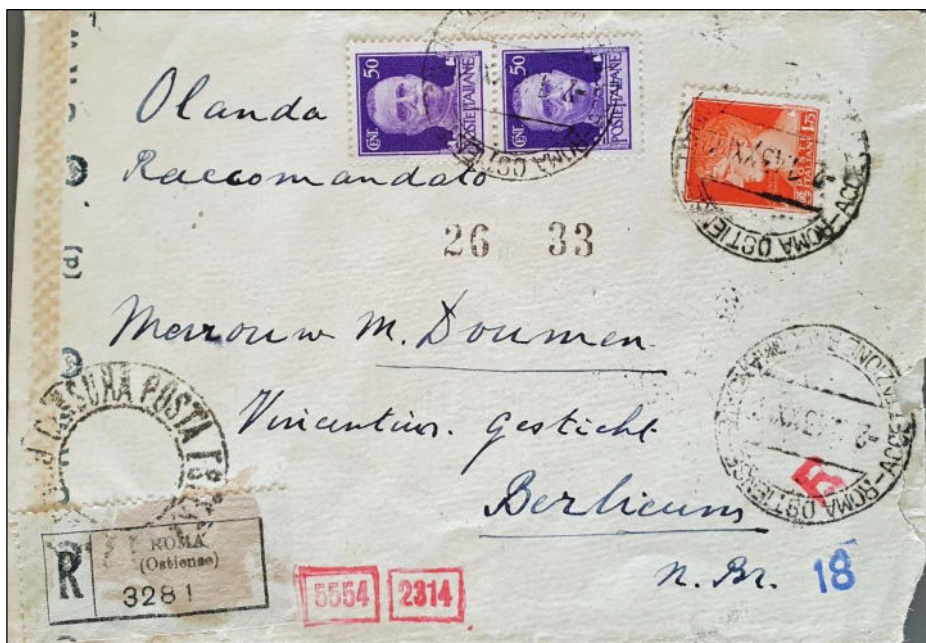 Olanda
Raccomandato
50
CENT.
POSTE ITALIANE
50
CENT.
POSTE ITALIANE
1,75
POSTE
ITALIANE
ROMA OSTIENSE
ROMA OSTIENSE
26 33
Mevrouw M. Doumen
Vincentius. Gesticht
Berlicum
N. Br.
(d)
CENSURA POSTA
ROMA OSTIENSE
R
R
ROMA
(Ostiense)
3281
5554
2314
18